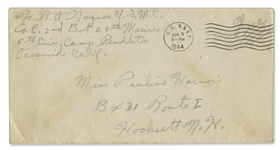 R.A. Gagner U.S.M.C.
Co E. 2nd Bat 28th Marines
5th Div, Camp Pendleton
Oceanside Calif.
U.S. NAVY
JUN 5
2-PM
1944
Miss Pauline
Box 31 Route I
Hooksett N.H.